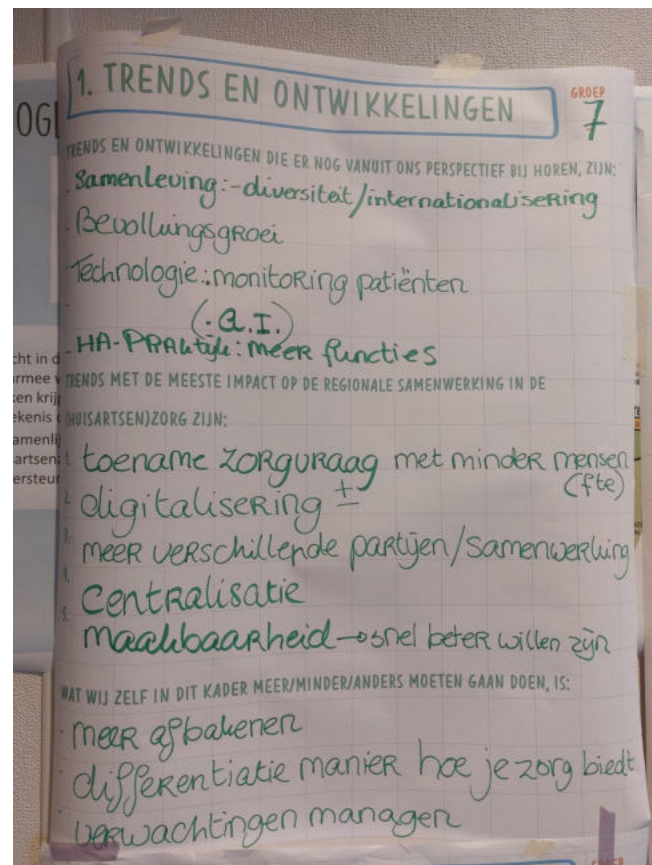 OGI
1. TRENDS EN ONTWIKKELINGEN
GROEP
7
TRENDS EN ONTWIKKELINGEN DIE ER NOG VANUIT ONS PERSPECTIEF BIJ HOREN, ZIJN:
· Samenleving: - diversiteit/internationalisering
· Bevolkingsgroei
· Technologie: monitoring patiënten
(· a.I.)
- HA-PRAktijk: meer functies
TRENDS MET DE MEESTE IMPACT OP DE REGIONALE SAMENWERKING IN DE
(HUISARTSEN)ZORG ZIJN:
1. toename zorgvraag met minder mensen
(fte)
2. digitalisering ±
3. meer verschillende partijen/samenwerking
4. Centralisatie
5. maakbaarheid → snel beter willen zijn
WAT WIJ ZELF IN DIT KADER MEER/MINDER/ANDERS MOETEN GAAN DOEN, IS:
· meer afbakenen
· differentiatie manier hoe je zorg biedt
· verwachtingen managen